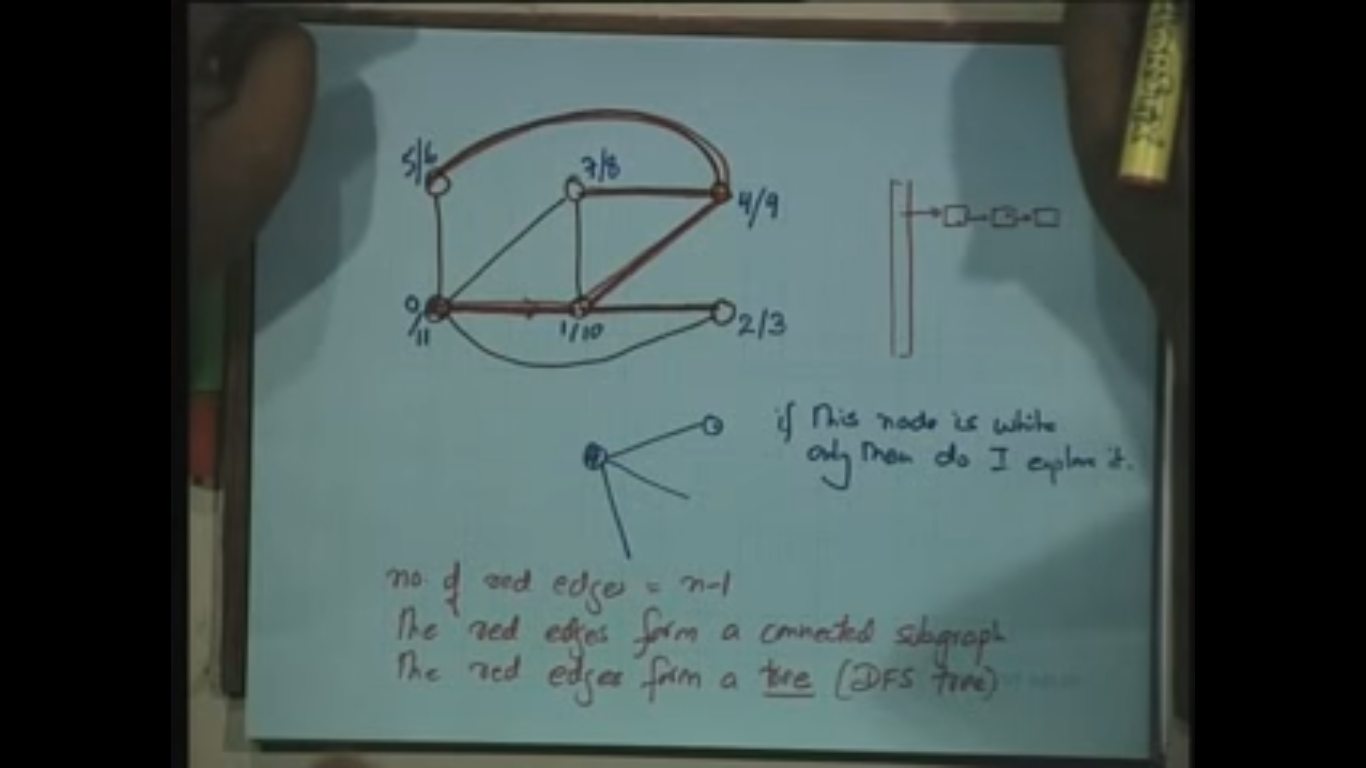 5/6
7/8
4/9
0/11
1/10
2/3
if This node is white
only then do I explore it.
no. of red edges = n-1
The red edges form a connected subgraph
The red edges form a tree (DFS tree)